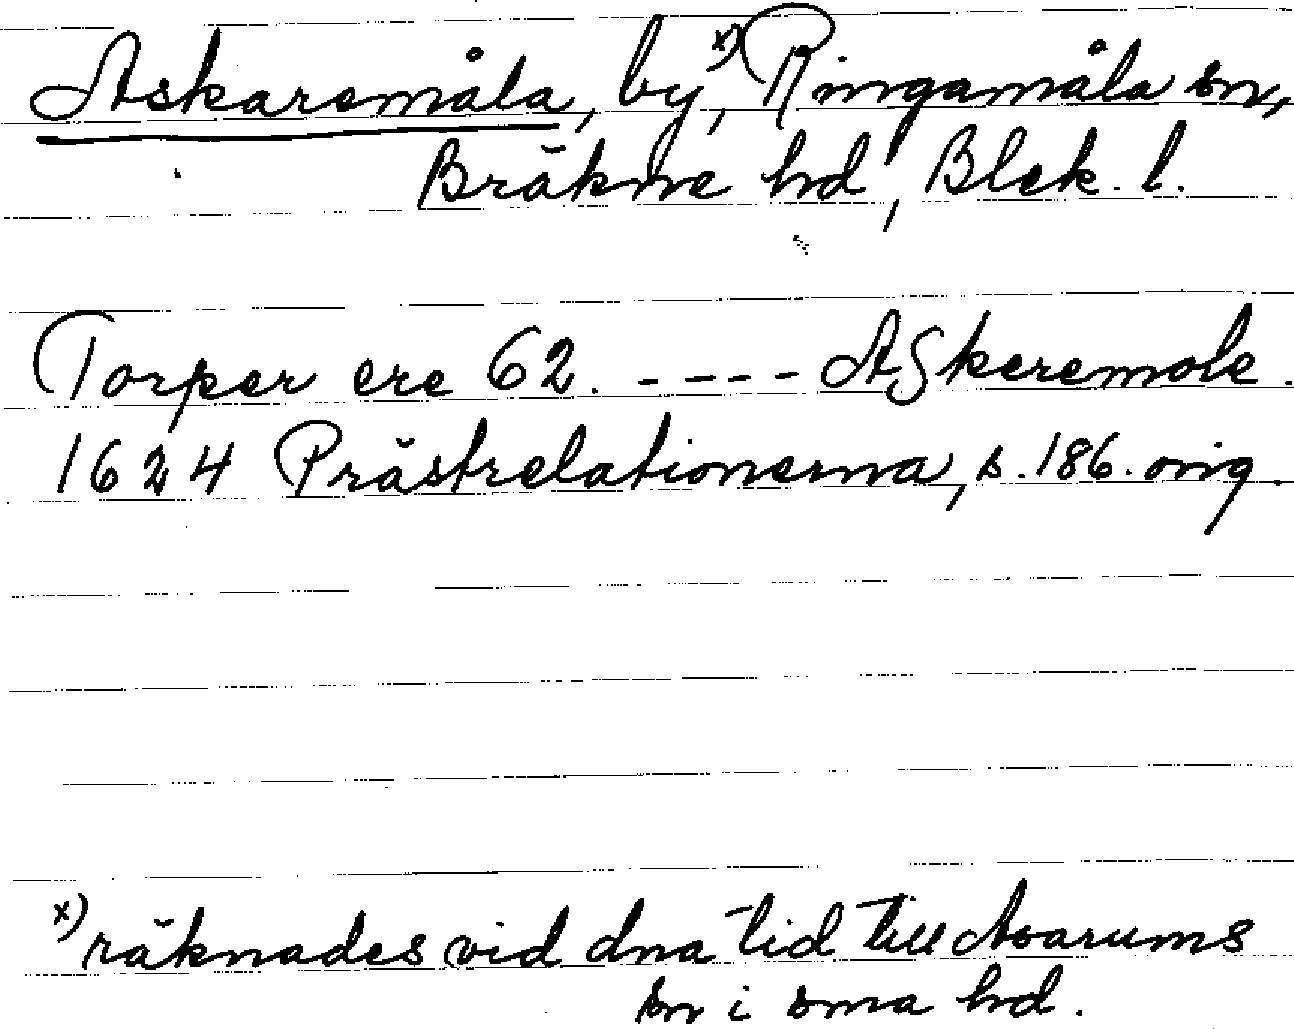 Askaremåla, by, x) Ringamåla sn,
Bräkne hd, Blek. l.
Torper ere 62. ---- Askeremole.
1624 Prästrelationerna, s. 186. orig.
x) räknades vid dna tid till Asarums
sn i sma hd.